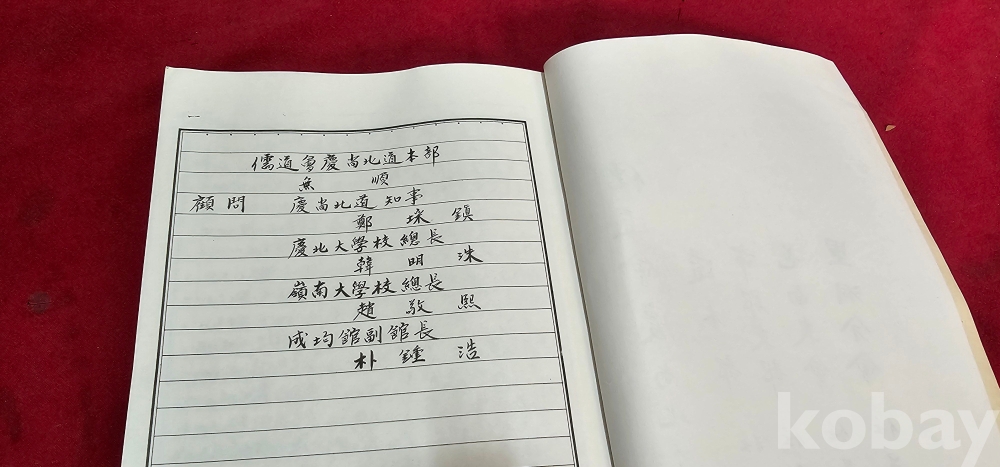 一
儒道會慶尙北道本部
無 順
顧問 慶尙北道知事
鄭 埰 鎭
慶北大學校總長
韓 明 洙
嶺南大學校總長
趙 敬 熙
成均館副館長
朴 鍾 浩
kobay